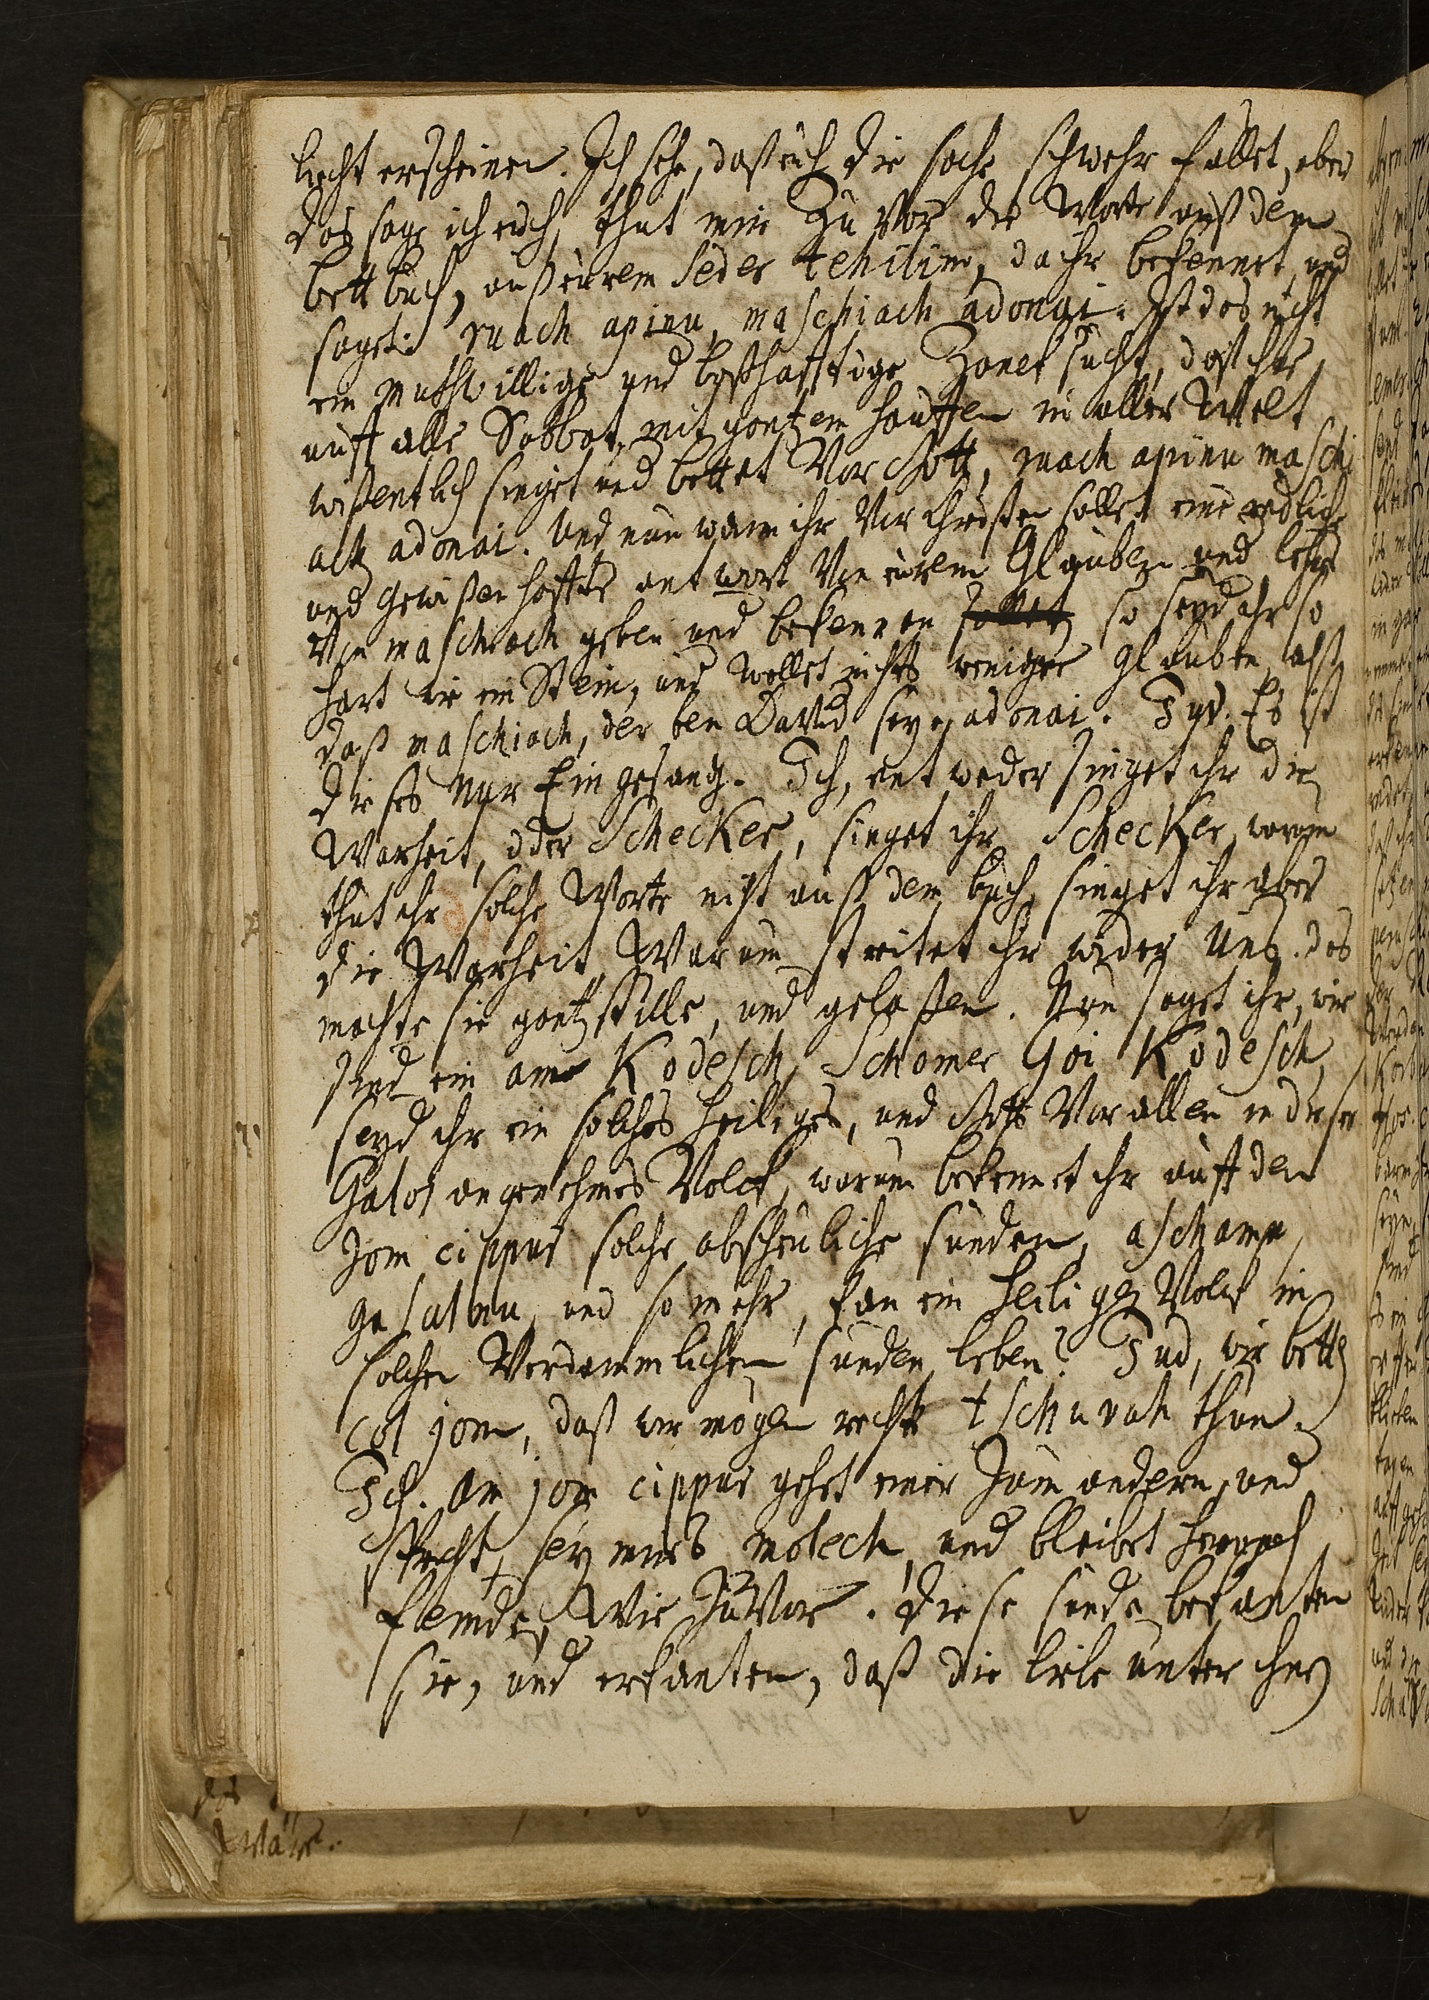 licht erscheinen. Ich sehe, daß euch die sache schwehr fallet, aber
das sage ich euch, thut mir zu vor die Worte auß dem
bettbuch, auß eurem Seder tehilim, da ihr bekennet und
saget: ruach apinu, maschiach adonai. Ist das nicht
ein muthwillige und boßhafftige Zancksucht, daß ihr
auff alle Sabbat mit gantzem hauffen in aller Welt
wißentlich singet und bettet vor Gott, ruach apinu maschi
ach adonai. Und nun wann ihr vor Christen sollet eine redliche
und gewißenhaffte antwort von eurem Glauben und lehre
von maschiach geben und bekennen so seyd ihr so
hart wie ein Stein, und wollet nichts weniger glauben alß
daß maschiach, der ben David seye adonai. Jud. Es ist
dieses nur Ein gesang. Ich, entweder singet ihr die
Warheit, oder Schecker, singet ihr Schecker, warum
thut ihr solche Worte nicht auß dem buch, singet ihr aber
die Warheit, Warum streitet ihr wider uns. das
machte sie gantz stille, und gelaßen. Nun saget ihr, wir
sind ein am Kodesch, Schomer Goi Kodesch,
seyd ihr ein solches heiliges, und Gott vor allen in dieser
Galos angenehmes Volck, warum bekennet ihr auff den
Jom cippur solche abscheuliche sünden, aschamnu,
gasalnu, und so mehr, kan ein heiliges Volck in
solchen Verdammlichen sünden leben? Jud, wir betten
col jom, daß wir mögen rechte tschuvah thun.
Ich. Am jom cippur gehet einer zum andern, und
spricht, sey mirs molech, und bleibet hernach
feinde, wie zuvor. Diese sünde bekanten
sie, und erkanten, daß die liebe unter ihnen